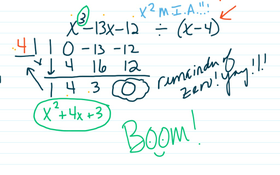 x² M.I.A.!!!
x³ - 13x - 12 ÷ (x - 4)
4 1 0 -13 -12
↓ 4 16 12
1 4 3 0 remainder of zero! Yay!!!
x² + 4x + 3
Boom!